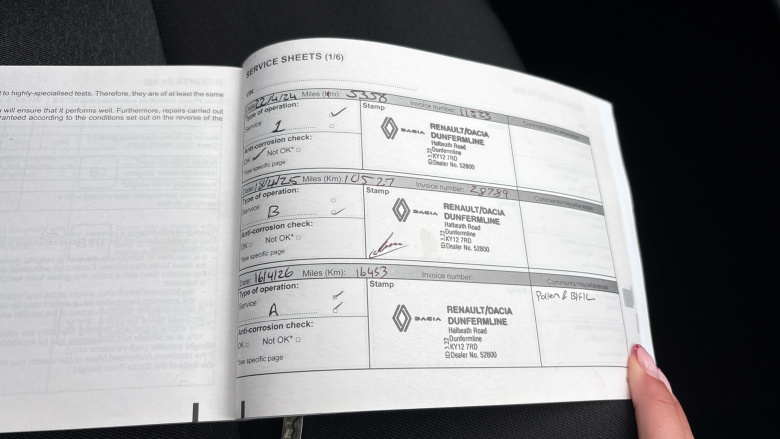 l to highly-specialised tests. Therefore, they are of at least the same
will ensure that it performs well. Furthermore, repairs carried out
ranteed according to the conditions set out on the reverse of the
SERVICE SHEETS (1/6)
VIN:
Date: 22/4/24 Miles (Km): 5358 Invoice number: Comments/miscellaneous
Type of operation: ✓
Service 1
Stamp
Anti-corrosion check:
OK ✓ Not OK* □
*See specific page
DACIA
RENAULT/DACIA
DUNFERMLINE
Halbeath Road
Dunfermline
KY12 7RD
Dealer No. 52800
Date: 18/4/25 Miles (Km): 10527 Invoice number: 28789 Comments/miscellaneous
Type of operation: □
Service B ✓
Stamp
Anti-corrosion check:
OK □ Not OK* □
*See specific page
DACIA
RENAULT/DACIA
DUNFERMLINE
Halbeath Road
Dunfermline
KY12 7RD
Dealer No. 52800
Date: 16/4/26 Miles (Km): 16453 Invoice number: Comments/miscellaneous
Type of operation: ✓
Service A ✓
Stamp
Pollen & B/F/C
Anti-corrosion check:
OK □ Not OK* □
*See specific page
DACIA
RENAULT/DACIA
DUNFERMLINE
Halbeath Road
Dunfermline
KY12 7RD
Dealer No. 52800